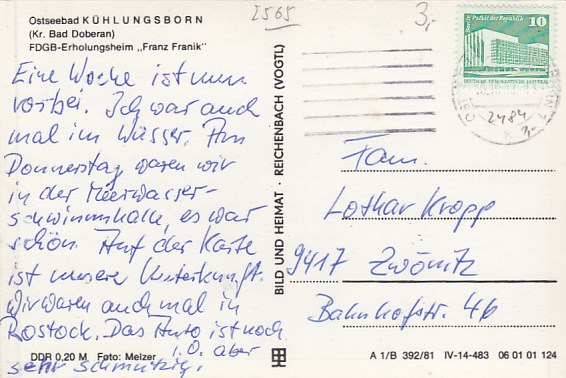 Ostseebad KÜHLUNGSBORN
(Kr. Bad Doberan)
FDGB-Erholungsheim „Franz Franik"
2565
3,-
Palast der Republik
10
DEUTSCHE DEMOKRATISCHE REPUBLIK
2484
3,-
Eine Woche ist nun
vorbei. Ich war auch
mal im Wasser. Am
Donnerstag waren wir
in der Meerwasser-
schwimmhalle, es war
schön. Auf der Karte
ist unsere Unterkunft.
Wir waren auch mal in
Rostock. Das Auto ist noch
i.O. aber
sehr schmutzig.
BILD UND HEIMAT · REICHENBACH (VOGTL)
Fam.
Lothar Kropp
9417 Zwönitz
Bahnhofstr. 46
DDR 0,20 M Foto: Melzer
A 1/B 392/81 IV-14-483 06 01 01 124